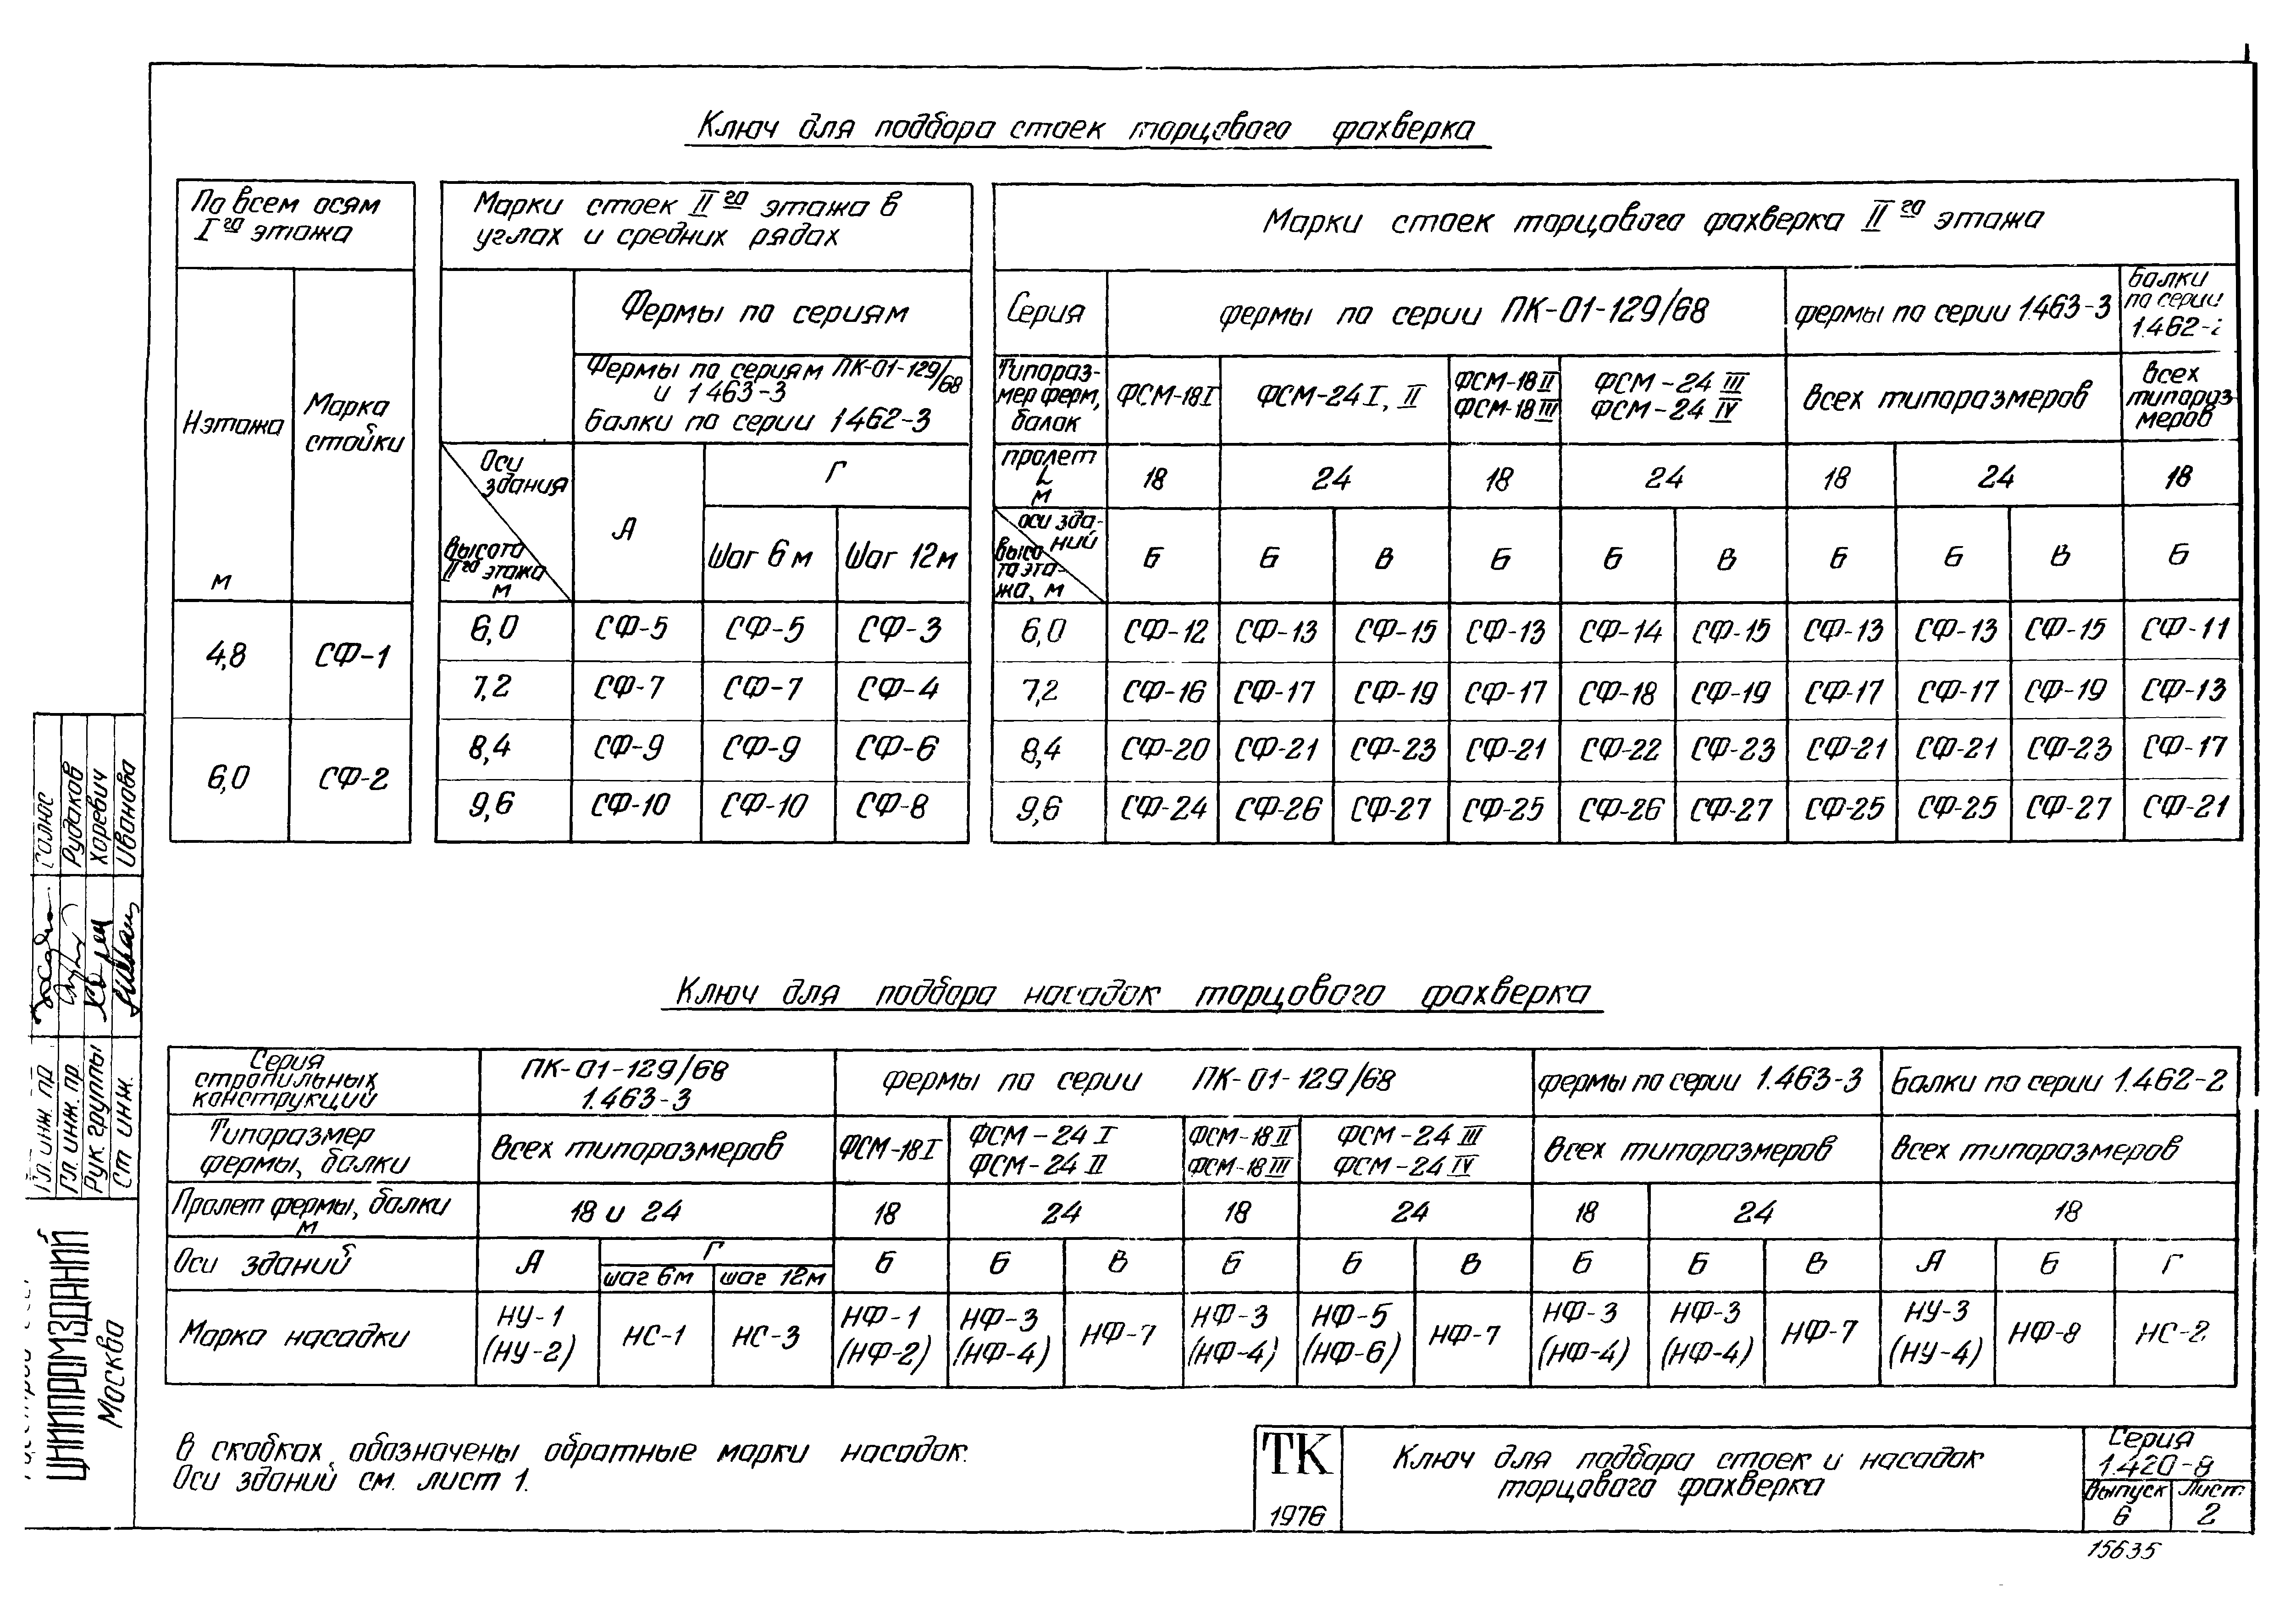 Ключ для подбора стоек торцового фахверка
По всем осям
I го этажа
Н этажа
м
Марка
стойки
4,8 СФ-1
6,0 СФ-2
Марки стоек II го этажа в
углах и средних рядах
Фермы по сериям
Фермы по сериям ПК-01-129/68
и 1463-3
Балки по серии 1462-3
Оси
здания
Высота
II го этажа
м
А
Г
Шаг 6 м Шаг 12 м
6,0 СФ-5 СФ-5 СФ-3
7,2 СФ-7 СФ-7 СФ-4
8,4 СФ-9 СФ-9 СФ-6
9,6 СФ-10 СФ-10 СФ-8
Марки стоек торцового фахверка II го этажа
Серия
фермы по серии ПК-01-129/68
фермы по серии 1.463-3
Балки
по серии
1.462-
Типораз-
мер ферм,
балок
ФСМ-18 I
ФСМ-24 I, II
ФСМ-18 II
ФСМ-18 III
ФСМ-24 III
ФСМ-24 IV
Всех типоразмеров
Всех
типораз-
меров
пролет
L
м
18 24 18 24 18 24 18
оси зда-
ний
Высо
та эта-
жа, м
Б Б В Б Б В Б Б В Б
6,0 СФ-12 СФ-13 СФ-15 СФ-13 СФ-14 СФ-15 СФ-13 СФ-13 СФ-15 СФ-11
7,2 СФ-16 СФ-17 СФ-19 СФ-17 СФ-18 СФ-19 СФ-17 СФ-17 СФ-19 СФ-13
8,4 СФ-20 СФ-21 СФ-23 СФ-21 СФ-22 СФ-23 СФ-21 СФ-21 СФ-23 СФ-17
9,6 СФ-24 СФ-26 СФ-27 СФ-25 СФ-26 СФ-27 СФ-25 СФ-25 СФ-27 СФ-21
Ключ для подбора насадок торцового фахверка
Серия
стропильных
конструкций
ПК-01-129/68
1.463-3
фермы по серии ПК-01-129/68
фермы по серии 1.463-3
Балки по серии 1.462-2
Типоразмер
фермы, балки
Всех типоразмеров
ФСМ-18 I
ФСМ-24 I
ФСМ-24 II
ФСМ-18 II
ФСМ-18 III
ФСМ-24 III
ФСМ-24 IV
Всех типоразмеров
Всех типоразмеров
Пролет фермы, балки
м
18 и 24 18 24 18 24 18 24 18
Оси зданий
А
Г
шаг 6м шаг 12м
Б Б В Б Б В Б Б В А Б Г
Марка насадки
НУ-1
(НУ-2)
НС-1
НС-3
НФ-1
(НФ-2)
НФ-3
(НФ-4)
НФ-7
НФ-3
(НФ-4)
НФ-5
(НФ-6)
НФ-7
НФ-3
(НФ-4)
НФ-3
(НФ-4)
НФ-7
НУ-3
(НУ-4)
НФ-8
НС-2
В скобках обозначены обратные марки насадок.
Оси зданий см. лист 1.
ТК
1976
Ключ для подбора стоек и насадок
торцового фахверка
Серия
1.420-8
Выпуск
6
Лист
2
15635
Гл инж. пр
Гл. инж. пр. Рудаков
Рук. группы Хоревич
Ст инж. Иванова
ЦНИИПРОМЗДАНИЙ
Москва